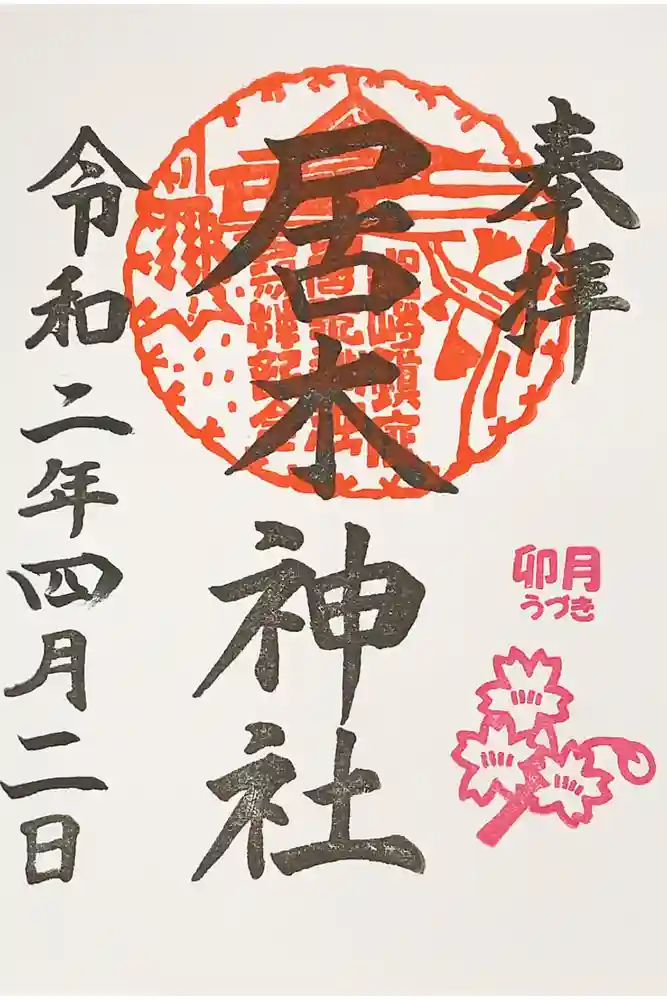 奉拝
居木神社
卯月
うづき
令和二年四月二日